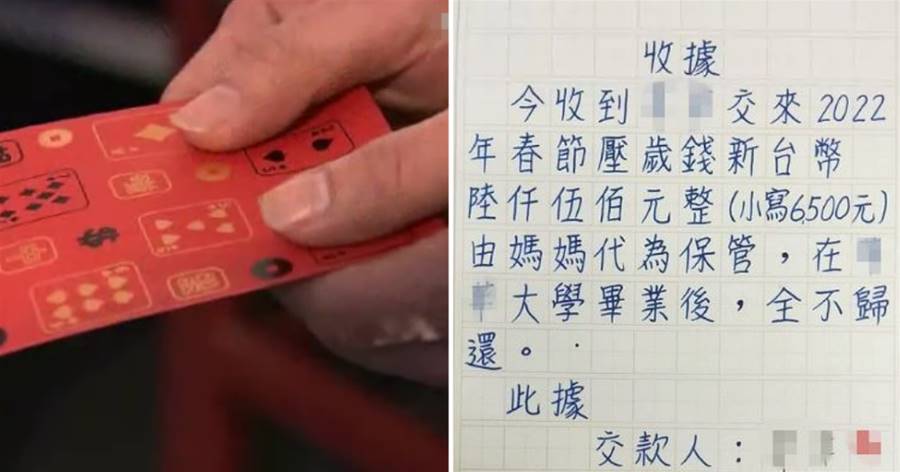 收據
今收到 交來2022
年春節壓歲錢新台幣
陸仟伍佰元整(小寫6,500元)
由媽媽代為保管,在
大學畢業後,全不歸
還。
此據
交款人: